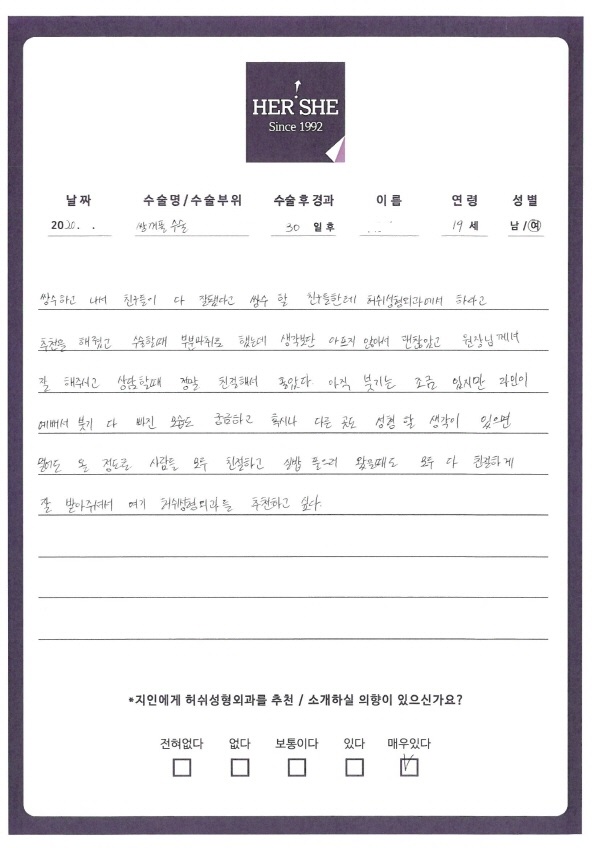 HER SHE
Since 1992
날짜 수술명/수술부위 수술후경과 이름 연령 성별
2020. . 쌍꺼풀 수술 30 일후 19세 남/여
쌍수하고 나서 친구들이 다 잘됐다고 쌍수 할 친구들한테 허쉬성형외과에서 하라고
추천을 해줬고 수술할때 부분마취로 했는데 생각보단 아프지 않아서 괜찮았고 원장님께서
잘 해주시고 상담할때 정말 친절해서 좋았다. 아직 붓기는 조금 있지만 라인이
예뻐서 붓기 다 빠진 모습도 궁금하고 혹시나 다른 곳도 성형 할 생각이 있으면
또 올 정도로 사람들 모두 친절하고 실밥 풀으러 왔을때도 모두 다 친절하게
잘 받아주셔서 여기 허쉬성형외과를 추천하고 싶다.
*지인에게 허쉬성형외과를 추천 / 소개하실 의향이 있으신가요?
전혀없다 없다 보통이다 있다 매우있다